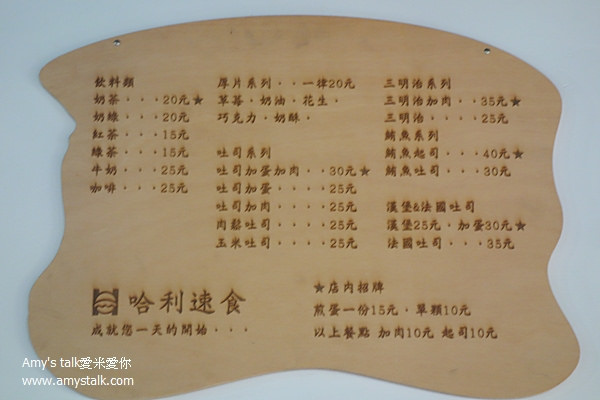 飲料類
奶茶···20元★
奶綠···20元
紅茶···15元
綠茶···15元
牛奶···25元
咖啡···25元
厚片系列··一律20元
草莓·奶油·花生·
巧克力·奶酥·
吐司系列
吐司加蛋加肉···30元★
吐司加蛋····25元
吐司加肉····25元
肉鬆吐司····25元
玉米吐司····25元
三明治系列
三明治加肉··35元★
三明治····25元
鮪魚系列
鮪魚起司···40元★
鮪魚吐司···30元
漢堡&法國吐司
漢堡25元·加蛋30元★
法國吐司···35元
哈利速食
成就您一天的開始···
★店內招牌
煎蛋一份15元·單顆10元
以上餐點 加肉10元 起司10元
Amy's talk愛米愛你
www.amystalk.com